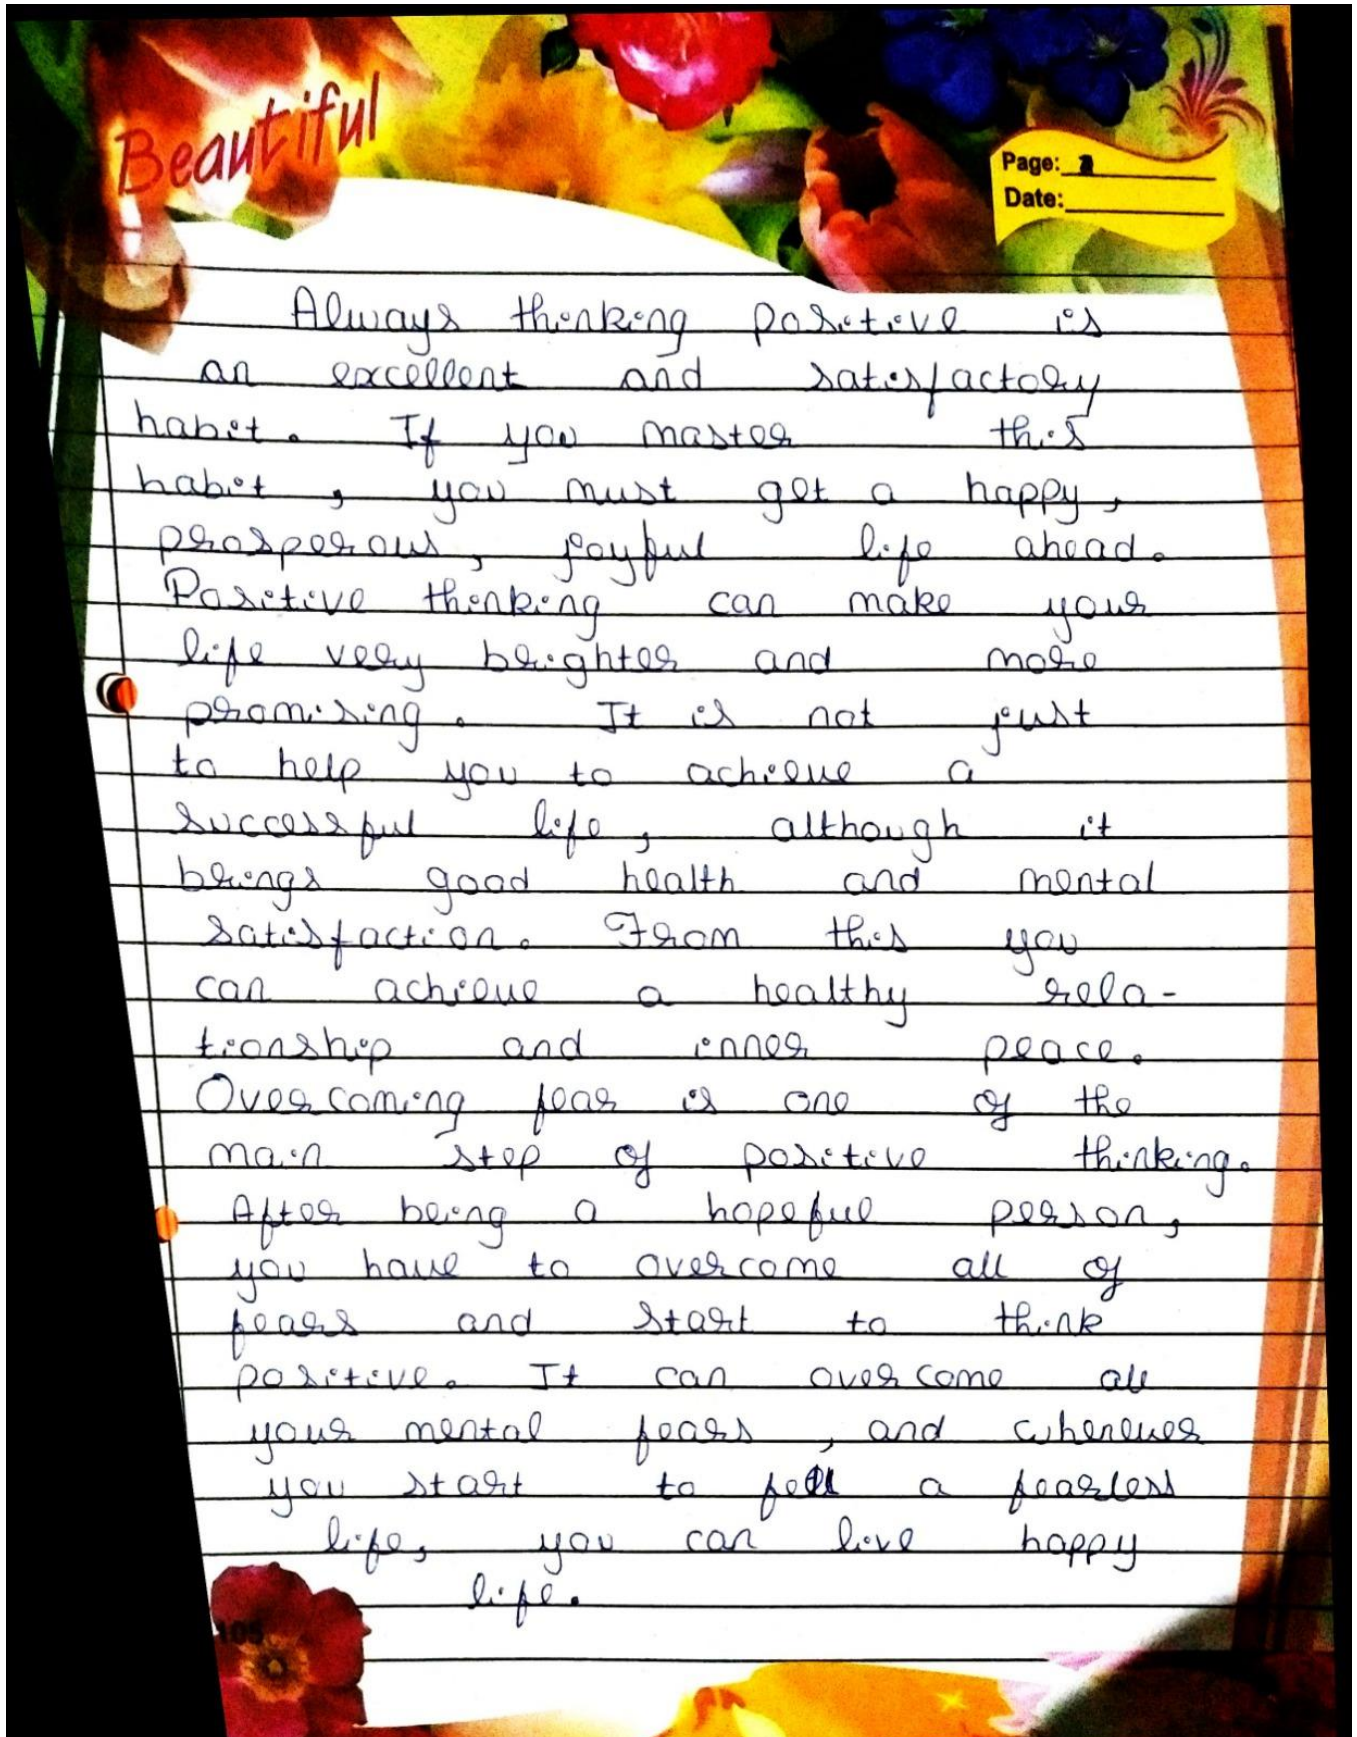 Beautiful
Page: 2
Date:
Always thinking positive is
an excellent and satisfactory
habit. If you master this
habit, you must get a happy,
prosperous, joyful life ahead.
Positive thinking can make your
life very brighter and more
promising. It is not just
to help you to achieve a
successful life, although it
brings good health and mental
satisfaction. From this you
can achieve a healthy rela-
tionship and inner peace.
Overcoming fear is one of the
main step of positive thinking.
After being a hopeful person,
you have to overcome all of
fears and start to think
positive. It can overcome all
your mental fears, and whenever
you start to fell a fearless
life, you can live happy
life.
105